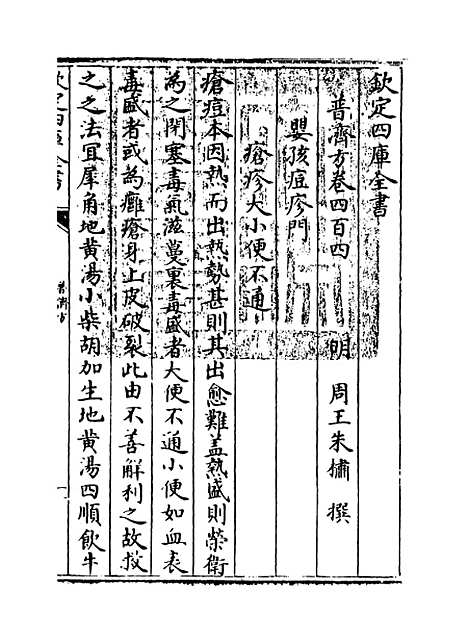 欽定四庫全書
普濟方卷四百四
明 周王朱橚 撰
嬰孩痘疹門
瘡疹大小便不通
瘡痘本因熱而出熱勢甚則其出愈難盖熱盛則榮衛
為之閉塞毒氣滋蔓裏毒盛者大便不通小便如血表
毒盛者或為癰瘡身上皮破裂此由不善解利之故救
之之法宜犀角地黄湯小柴胡加生地黄湯四順飲牛
欽定四庫全書
普濟方
一